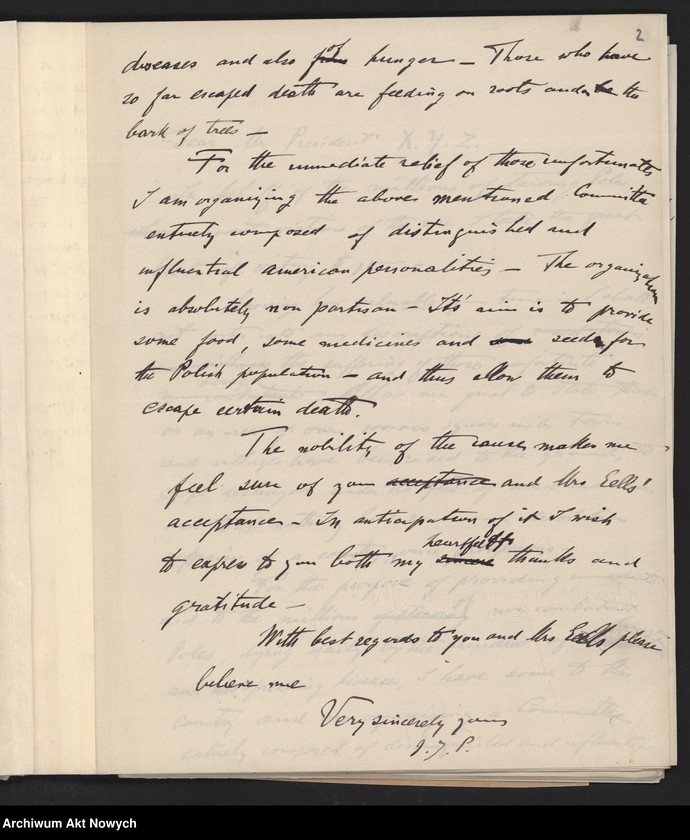 2
diseases and also from of hunger — Those who have
so far escaped death are feeding on roots and on the
bark of trees —
For the immediate relief of those unfortunates
I am organizing the above mentioned Committee
entirely composed of distinguished and
influential american personalities — The organization
is absolutely non partisan — It's aim is to provide
some food, some medicines and some seeds for
the Polish population — and thus allow them to
escape certain death.
The nobility of the cause makes me
feel sure of your acceptance and Mrs Eells'
acceptance — In anticipation of it I wish
to express to you both my sincere heartfelt thanks and
gratitude —
With best regards to you and Mrs Eells please
believe me
Very sincerely yours
I. J. P.
Archiwum Akt Nowych